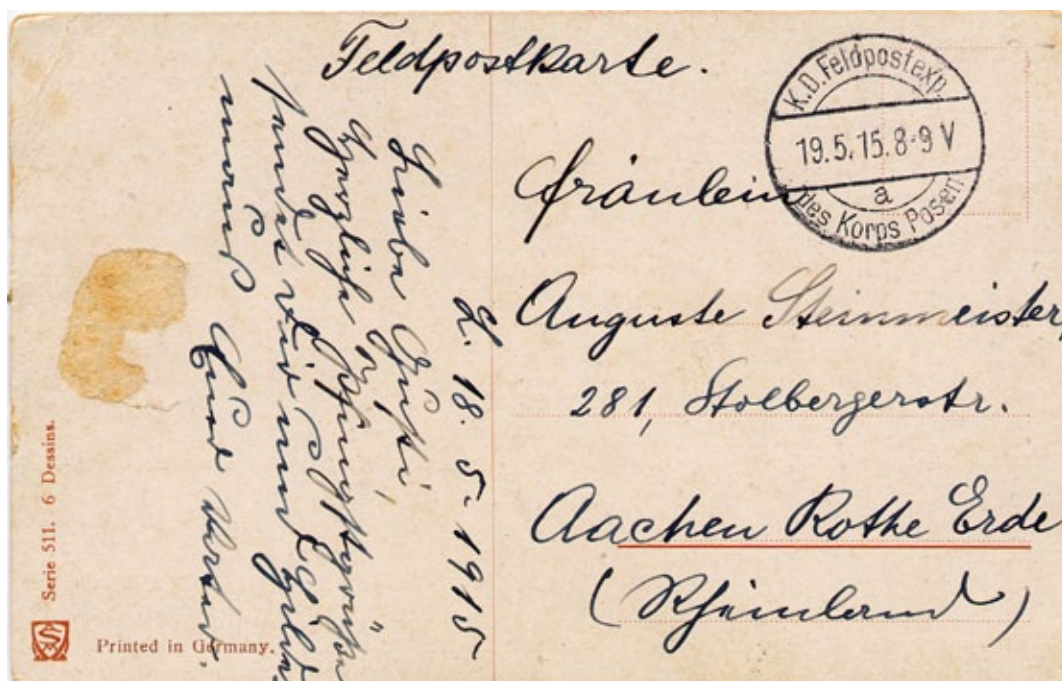 Feldpostkarte.
K.D. Feldpostexp.
19.5.15.8-9 V
a
des Korps Posen
Fräulein
Auguste Steinmeister,
281, Stolbergerstr.
Aachen Rothe Erde
(Rheinland)
L. 18. 5. 1915
Liebe Gusti,
Herzliche Pfingstgrüße
sendet Dir und
Vater.
Serie 511. 6 Dessins.
Printed in Germany.